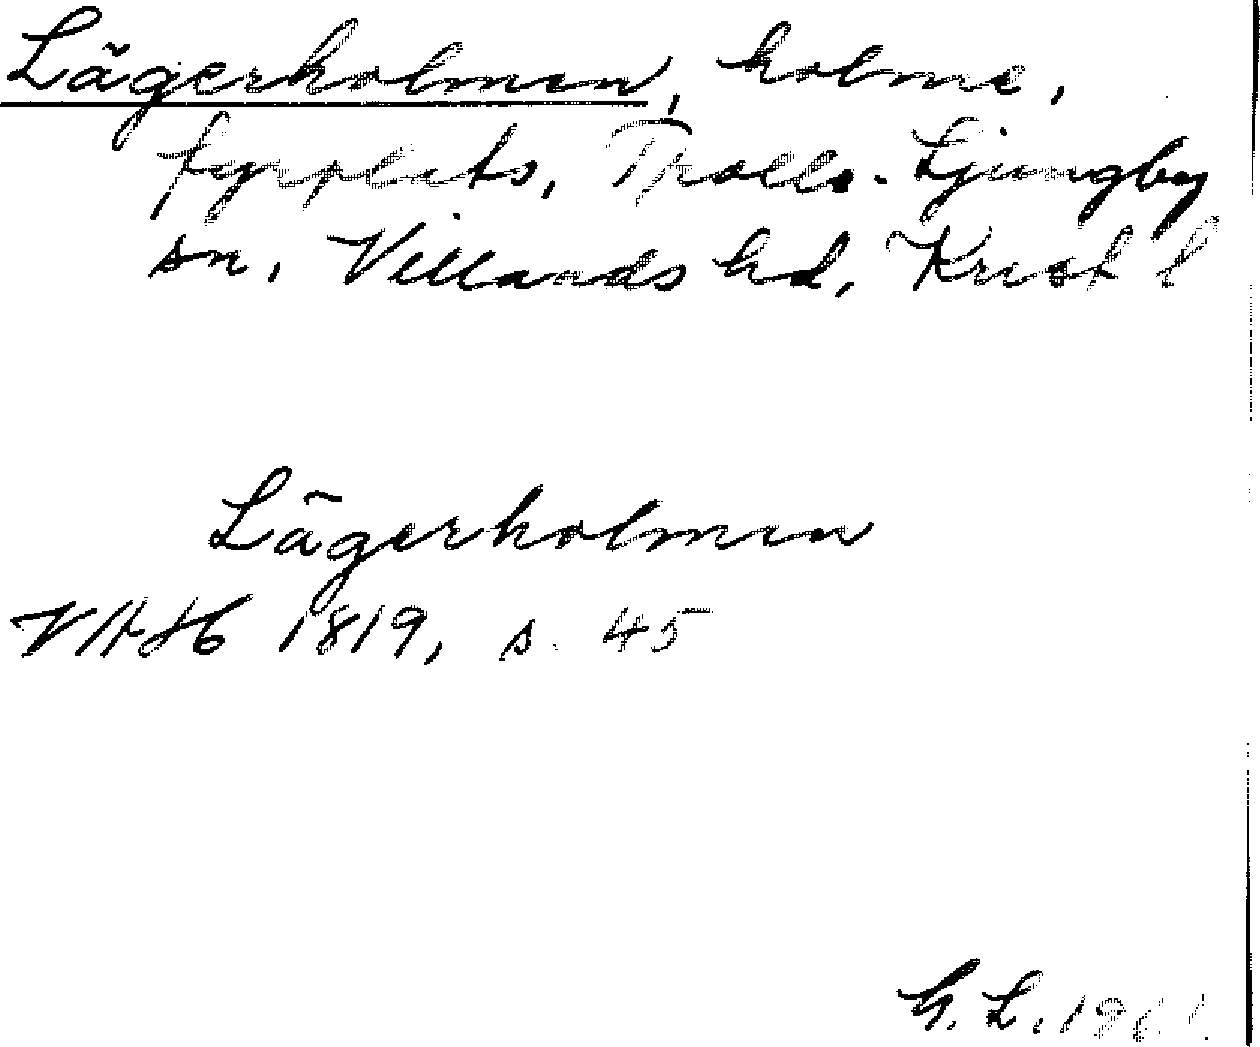 Lägerholmen, holme,
fyrplats, Trolle-Ljungby
sn, Villands hd, Krist l
Lägerholmen
VAH 1819, s. 45
G. L. 1961.